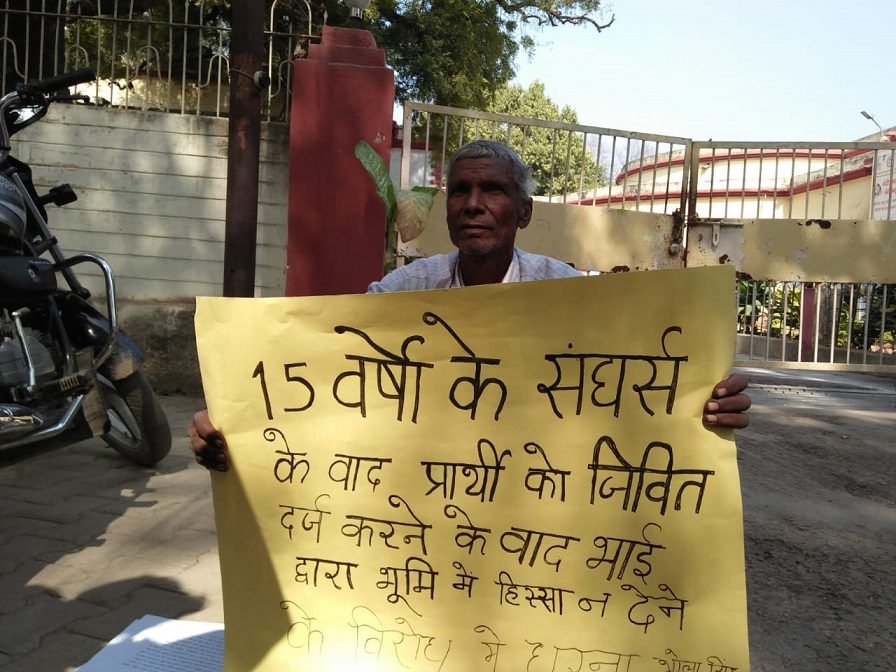 15 वर्षो के संघर्स
के वाद प्रार्थी को जिवित
दर्ज करने के वाद भाई
द्वारा भूमि में हिस्सा न देने
के विरोध मे धरना भोला सिंह